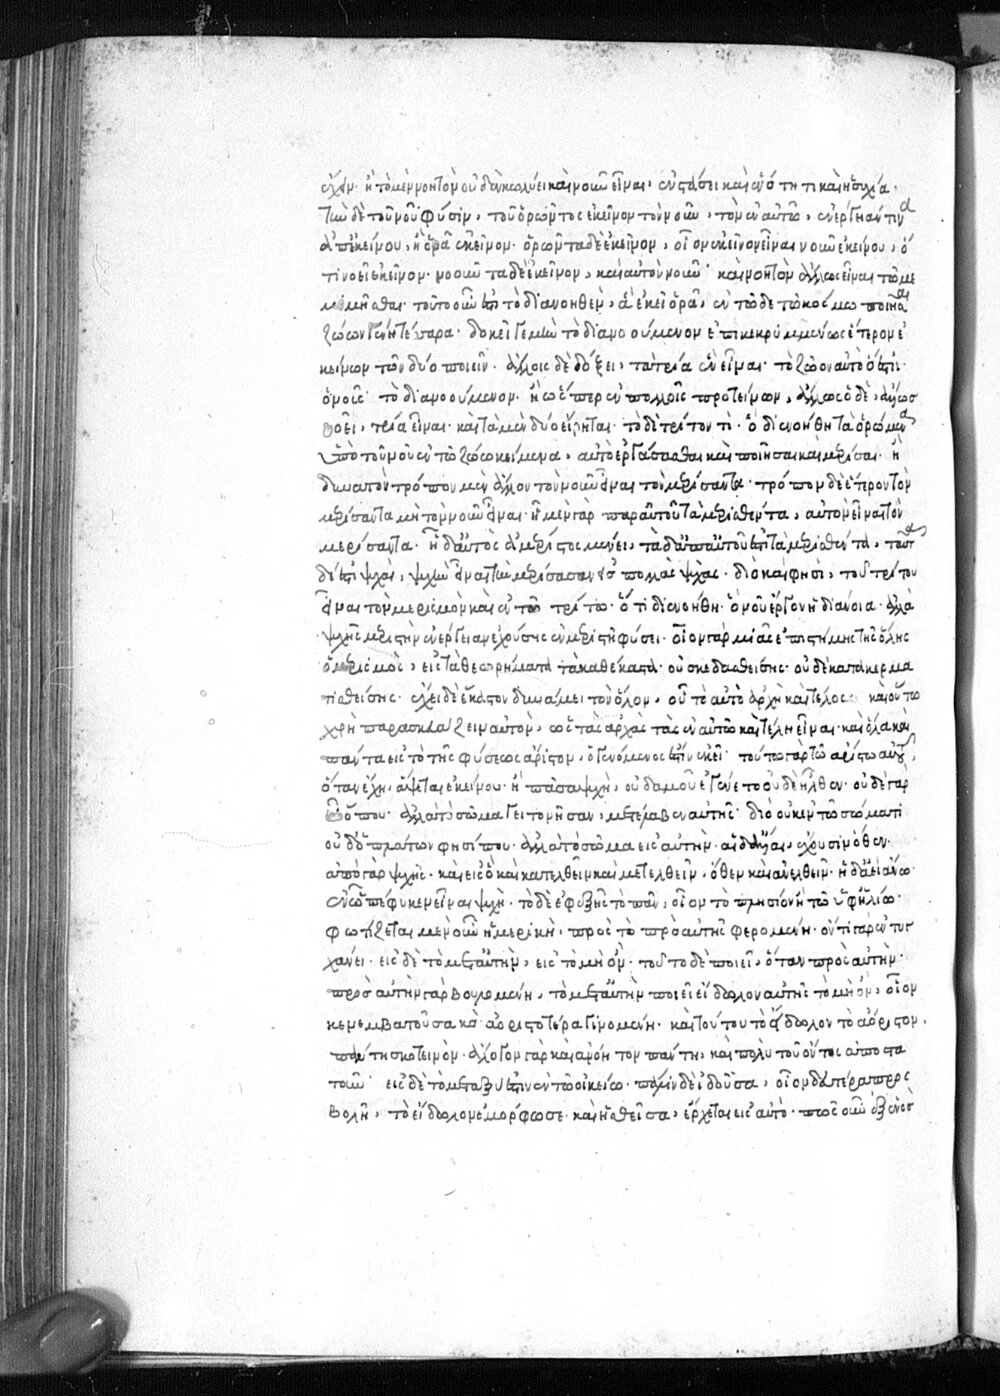 ἔχον· ἢ τὸ μὲν νοητὸν οὐδὲν κωλύει καὶ νοῦν εἶναι, ἐν στάσει καὶ ἑνότητι καὶ ἡσυχία·
τὴν δὲ τοῦ νοῦ φύσιν, τοῦ ὁρῶντος ἐκεῖνον τὸν νοῦν, τὸν ἐν αὐτῶ, ἐνέργειαν τινὰ
ἀπ' ἐκείνου, ἣ ὁρᾶ ἐκεῖνον· ὁρῶντα δὲ ἐκεῖνον, οἷον ἐκεῖνον εἶναι νοῦν ἐκείνου, ὅ
τι νοεῖ ἐκεῖνον· νοοῦντα δὲ ἐκεῖνον, καὶ αὐτὸν νοῦν καὶ νοητὸν ἄλλως εἶναι τῶ με
μιμῆσθαι· τοῦτο οὖν ἐστι τὸ διανοηθὲν, ἃ ἐκεῖ ὁρᾶ, ἐν τῶδε τῶ κόσμω ποιῆσαι
ζώων γένη τέσσαρα· δοκεῖ γε μὴν τὸ διανοούμενον ἐπικεκρυμμένως ἕτερον ἐ
κείνων τῶν δύο ποιεῖν· ἄλλοις δὲ δόξει, τὰ τρία ἓν εἶναι· τὸ ζῶον αὐτὸ ὅ ἐστιν·
ὁ νοῦς· τὸ διανοούμενον· ἢ ὥσπερ ἐν πολλοῖς προτείνων, ἄλλως ὁ δὲ, ἄλλως
νοεῖ, τρία εἶναι· καὶ τὰ μὲν δύο εἴρηται· τὸ δὲ τρίτον τί· ὃ διενοήθη τὰ ὁρώμενα
ὑπὸ τοῦ νοῦ ἐν τῶ ζώω κείμενα, αὐτὸ ἐργάσασθαι καὶ ποιῆσαι καὶ μερίσαι· ἢ
δυνατὸν τρόπον μὲν ἄλλον τὸν νοῦν εἶναι τὸν μερίσαντα· τρόπον δὲ ἕτερον τὸν
μερίσαντα μὴ τὸν νοῦν εἶναι· ἧ μὲν γὰρ παρ' αὐτοῦ τὰ μερισθέντα, αὐτὸν εἶναι τὸν
μερίσαντα· ἧ δ' αὐτὸς ἀμέριστος μένει, τὰ δ' ἀπ' αὐτοῦ ἐστι τὰ μερισθέντα, ταῦτα
δέ ἐστι ψυχαί, ψυχὴν εἶναι τὴν μερίσασαν εἰς πολλὰς ψυχάς· διὸ καί φησι, τοῦ τρίτου
εἶναι τὸν μερισμὸν καὶ ἐν τῶ τρίτω· ὅτι διενοήθη· ὃ νοῦ ἔργον ἡ διάνοια· ἀλλὰ
ψυχῆς μεριστὴν ἐνέργειαν ἐχούσης ἐν μεριστῆ φύσει· οἷον γὰρ μιᾶς ἐπιστήμης τῆς ὅλης
ὁ μερισμὸς, εἰς τὰ θεωρήματα τὰ καθέκαστα· οὐ σκεδασθείσης· οὐδὲ κατακερμα
τισθείσης· ἔχει δὲ ἕκαστον δυνάμει τὸ ὅλον, οὗ τὸ αὐτὸ ἀρχὴ καὶ τέλος· καὶ οὕτω
χρὴ παρασκευάζειν αὐτὸν, ὡς τὰς ἀρχὰς τὰς ἐν αὐτῶ καὶ τέλη εἶναι· καὶ ὅλα καὶ
πάντα εἰς τὸ τῆς φύσεως ἄριστον, ὃ γενόμενος ἐστὶν ἐκεῖ· τούτω γὰρ τῶ ἀρίστω αὐτοῦ,
ὅταν ἔχη, ἅψεται ἐκείνου· ἡ πᾶσα ψυχὴ, οὐδαμοῦ ἐγένετο οὐδὲ ἦλθεν· οὐδὲ γὰρ
ἦν ὅπου· ἀλλὰ τὸ σῶμα γειτονῆσαν, μετέλαβεν αὐτῆς· διὸ οὐκ ἐν τῶ σώματι
οὐδ' ὁ πλάτων φησί που· ἀλλὰ τὸ σῶμα εἰς αὐτήν· αἱ δ' ἄλλαι, ἔχουσιν ὅθεν·
ἀπὸ γὰρ ψυχῆς· καὶ εἰς ὃ καὶ κατελθεῖν καὶ μετελθεῖν, ὅθεν καὶ ἀνελθεῖν· ἡ δ' ἀεὶ ἄνω
ἐν ὧ πέφυκεν εἶναι ψυχή· τὸ δὲ ἐφεξῆς τὸ πᾶν, οἷον τὸ πλησίον ἢ τὸ ὑφ' ἡλίω·
φωτίζεται μὲν οὖν ἡ μερικὴ, πρὸς τὸ πρὸ αὐτῆς φερομένη· ὄντι γὰρ ἐντυγ
χάνει· εἰς δὲ τὸ μετ' αὐτὴν, εἰς τὸ μὴ ὄν· τοῦτο δὲ ποιεῖ, ὅταν πρὸς αὐτήν·
πρὸς αὐτὴν γὰρ βουλομένη, τὸ μετ' αὐτὴν ποιεῖ εἴδωλον αὐτῆς τὸ μὴ ὄν, οἷον
κενεμβατοῦσα καὶ ἀοριστοτέρα γινομένη· καὶ τούτου τὸ εἴδωλον τὸ ἀόριστον,
πάντη σκοτεινόν· ἄλογον γὰρ καὶ ἀνόητον πάντη, καὶ πολὺ τοῦ ὄντος ἀποστα
τοῦν· εἰς δὲ τὸ μεταξύ ἐστιν ἐν τῶ οἰκείω· πάλιν δὲ ἰδοῦσα, οἷον δευτέρα προς
βολῆ, τὸ εἴδωλον ἐμόρφωσε· καὶ ἡσθεῖσα, ἔρχεται εἰς αὐτό· πῶς οὖν ἐξ ἑνὸς